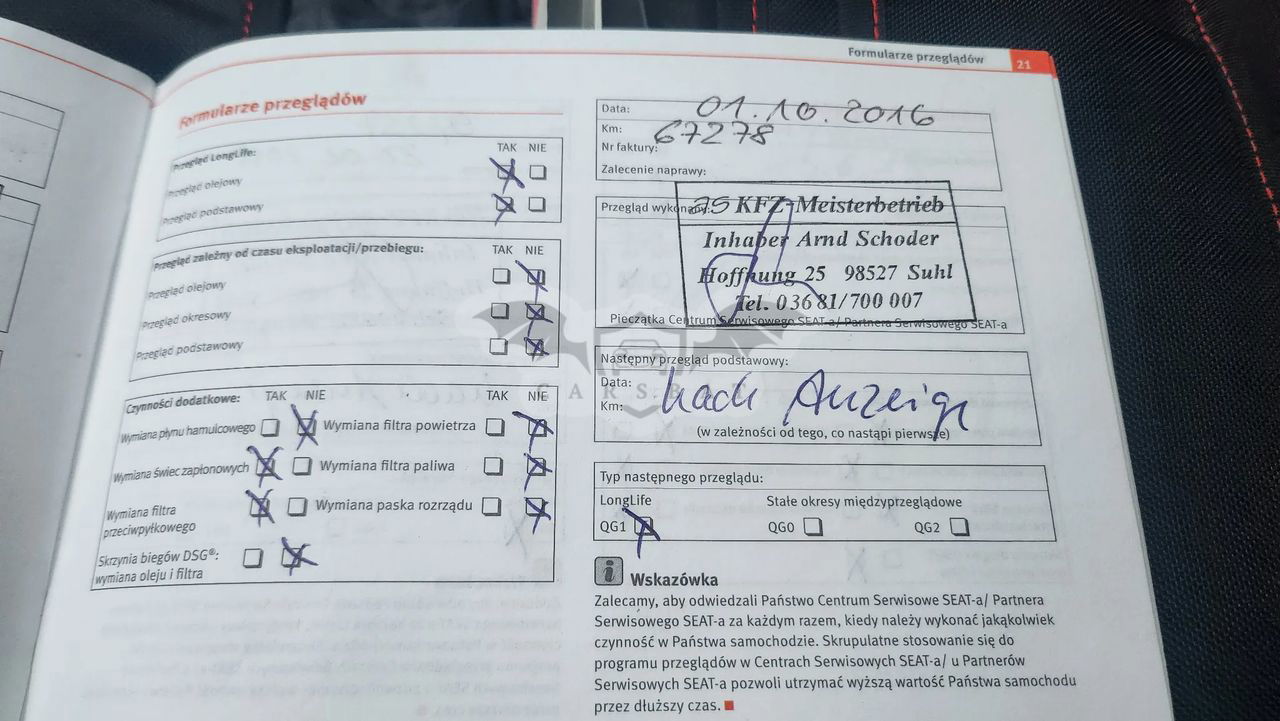 Formularze przeglądów
21
Formularze przeglądów
Przegląd LongLife: TAK NIE
Przegląd olejowy
Przegląd podstawowy
Przegląd zależny od czasu eksploatacji/przebiegu: TAK NIE
Przegląd olejowy
Przegląd okresowy
Przegląd podstawowy
Czynności dodatkowe: TAK NIE TAK NIE
Wymiana płynu hamulcowego Wymiana filtra powietrza
Wymiana świec zapłonowych Wymiana filtra paliwa
Wymiana filtra przeciwpyłkowego Wymiana paska rozrządu
Skrzynia biegów DSG®:
wymiana oleju i filtra
Data: 01.10.2016
Km: 67278
Nr faktury:
Zalecenie naprawy:
Przegląd wykonany:
AS KFZ-Meisterbetrieb
Inhaber Arnd Schoder
Hoffnung 25 98527 Suhl
Tel. 03681/700 007
Pieczątka Centrum Serwisowego SEAT-a/ Partnera Serwisowego SEAT-a
Następny przegląd podstawowy:
Data: nach Anzeige
Km:
(w zależności od tego, co nastąpi pierwsze)
Typ następnego przeglądu:
LongLife Stałe okresy międzyprzeglądowe
QG1 QG0 QG2
i Wskazówka
Zalecamy, aby odwiedzali Państwo Centrum Serwisowe SEAT-a/ Partnera
Serwisowego SEAT-a za każdym razem, kiedy należy wykonać jakąkolwiek
czynność w Państwa samochodzie. Skrupulatne stosowanie się do
programu przeglądów w Centrach Serwisowych SEAT-a/ u Partnerów
Serwisowych SEAT-a pozwoli utrzymać wyższą wartość Państwa samochodu
przez dłuższy czas.